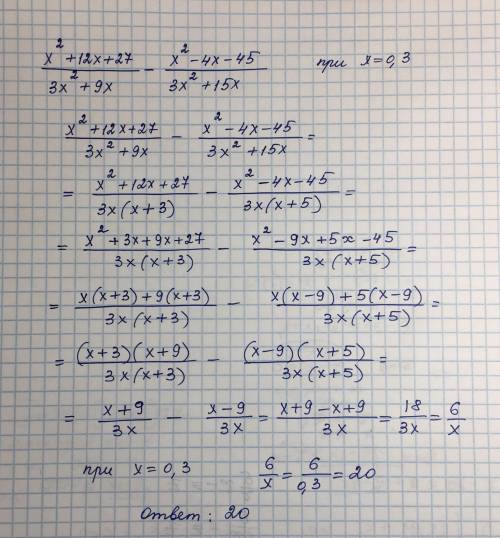 (x² + 12x + 27)/(3x² + 9x) − (x² − 4x − 45)/(3x² + 15x) при x = 0,3
(x² + 12x + 27)/(3x² + 9x) − (x² − 4x − 45)/(3x² + 15x) =
= (x² + 12x + 27)/(3x(x + 3)) − (x² − 4x − 45)/(3x(x + 5)) =
= (x² + 3x + 9x + 27)/(3x(x + 3)) − (x² − 9x + 5x − 45)/(3x(x + 5)) =
= (x(x + 3) + 9(x + 3))/(3x(x + 3)) − (x(x − 9) + 5(x − 9))/(3x(x + 5)) =
= ((x + 3)(x + 9))/(3x(x + 3)) − ((x − 9)(x + 5))/(3x(x + 5)) =
= (x + 9)/(3x) − (x − 9)/(3x) = (x + 9 − x + 9)/(3x) = 18/(3x) = 6/x
при x = 0,3 6/x = 6/0,3 = 20
Ответ: 20